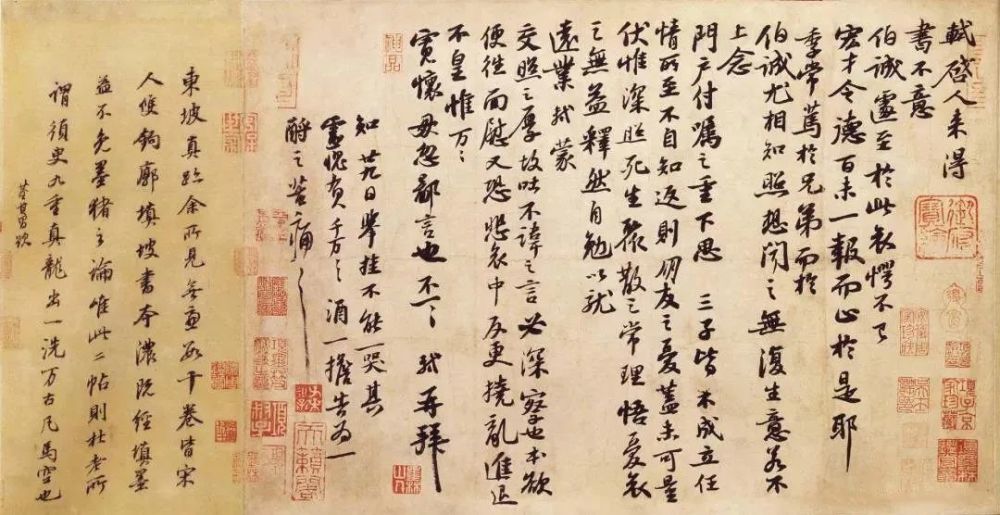 軾啓人来得
書不意
伯誠遽至於此哀愕不已
宏才令德百未一報而止於是耶
季常篤於兄弟而於
伯誠尤相知照想聞之無復生意若不
上念
門户付囑之重下思三子皆未成立任
情所至不自知返則朋友之憂蓋未可量
伏惟深照死生聚散之常理悟憂哀
之無益釋然自勉以就
遠業軾蒙
交照之厚故吐不諱之言必深察也本欲
便往面慰又恐悲哀中反更撓亂進退
不皇惟万々
寬懷毋忽鄙言也不一一軾再拜
知廿九日舉挂不能一哭其
靈愧負千万々酒一擔告為一
酹之苦痛々
東坡真跡余所見無慮數十卷皆宋
人雙鉤廓填坡書本濃既經填墨
益不免墨豬之論唯此二帖則杜老所
謂須臾九重真龍出一洗万古凡馬空也
董其昌題